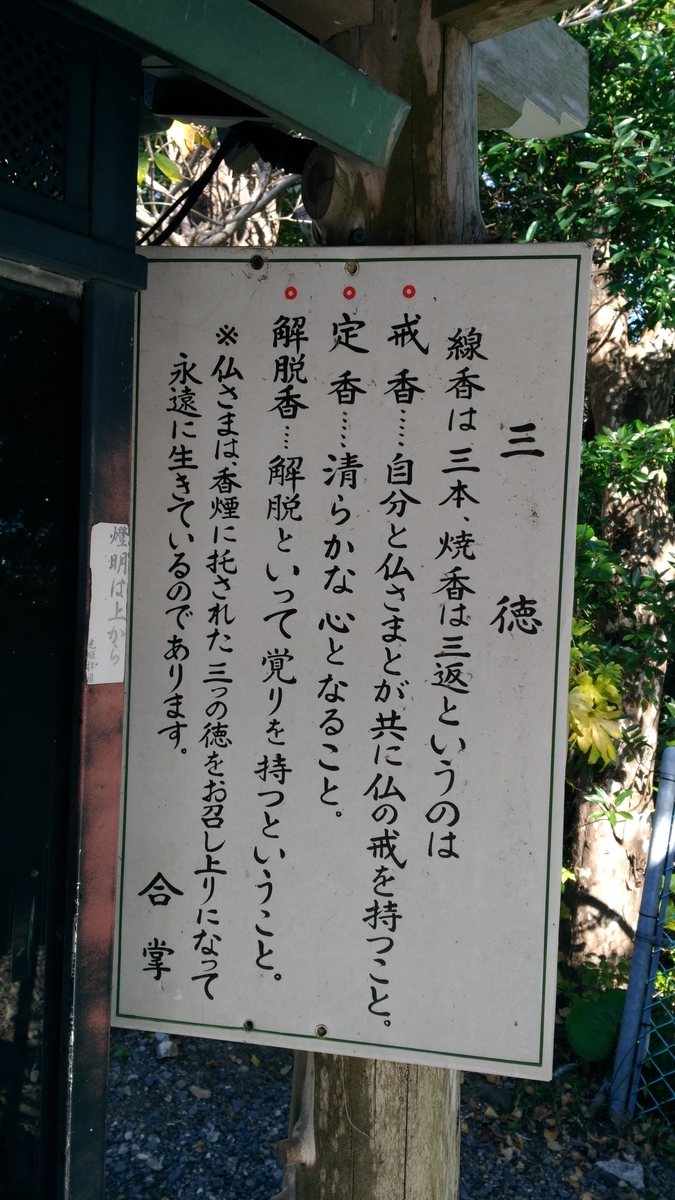 三徳
線香は三本、焼香は三返というのは
戒香……自分と仏さまとが共に仏の戒を持つこと。
定香……清らかな心となること。
解脱香……解脱といって覚りを持つということ。
※仏さまは、香煙に托された三つの徳をお召し上りになって
永遠に生きているのであります。
合掌
燈明は上から